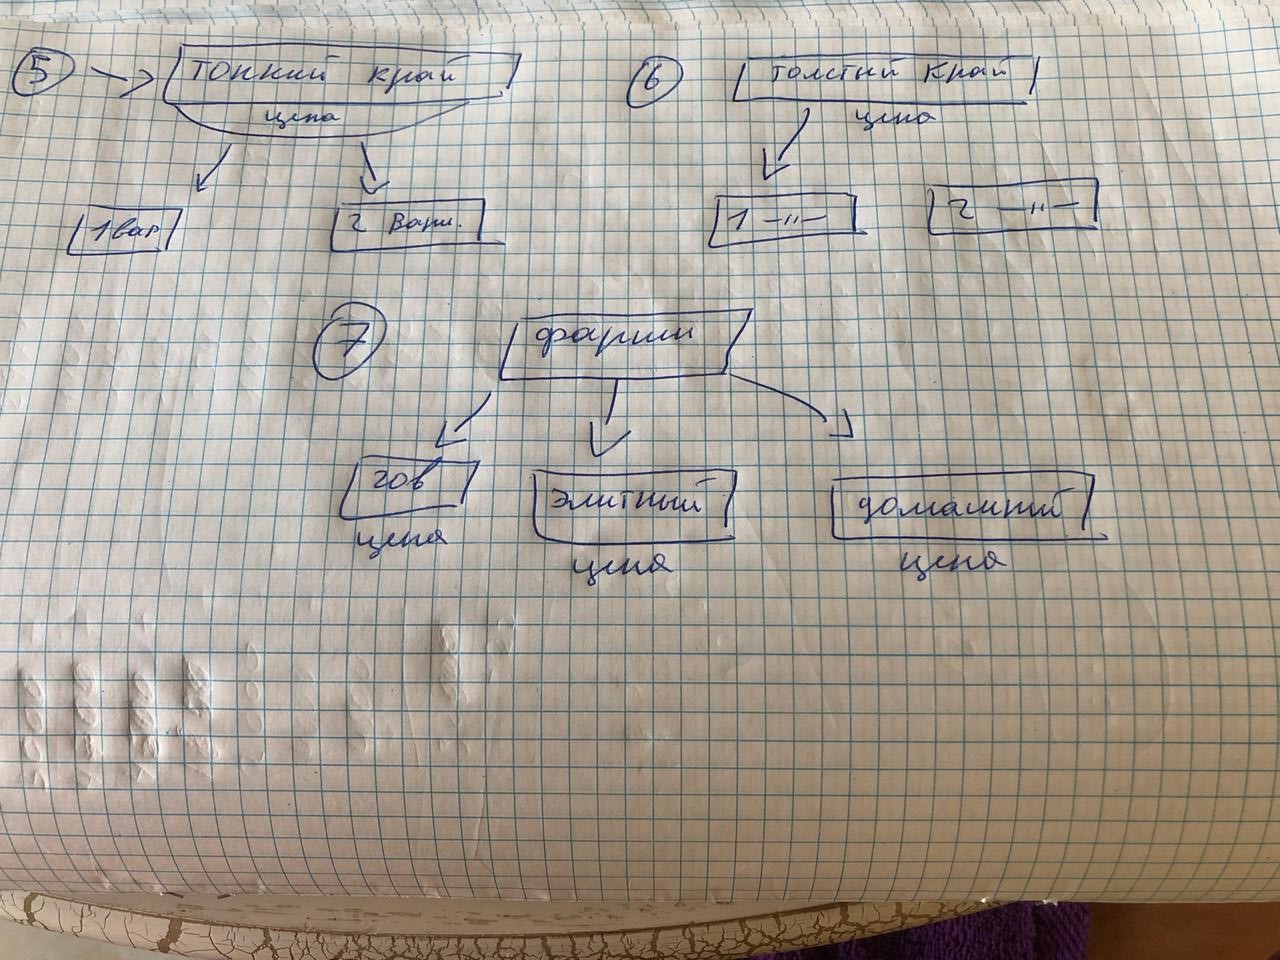 5 тонкий край
цена
1 вар
2 вари.
6 толстый край
цена
1 —"—
2 —"—
7 фарши
гов
цена
элитный
цена
домашний
цена